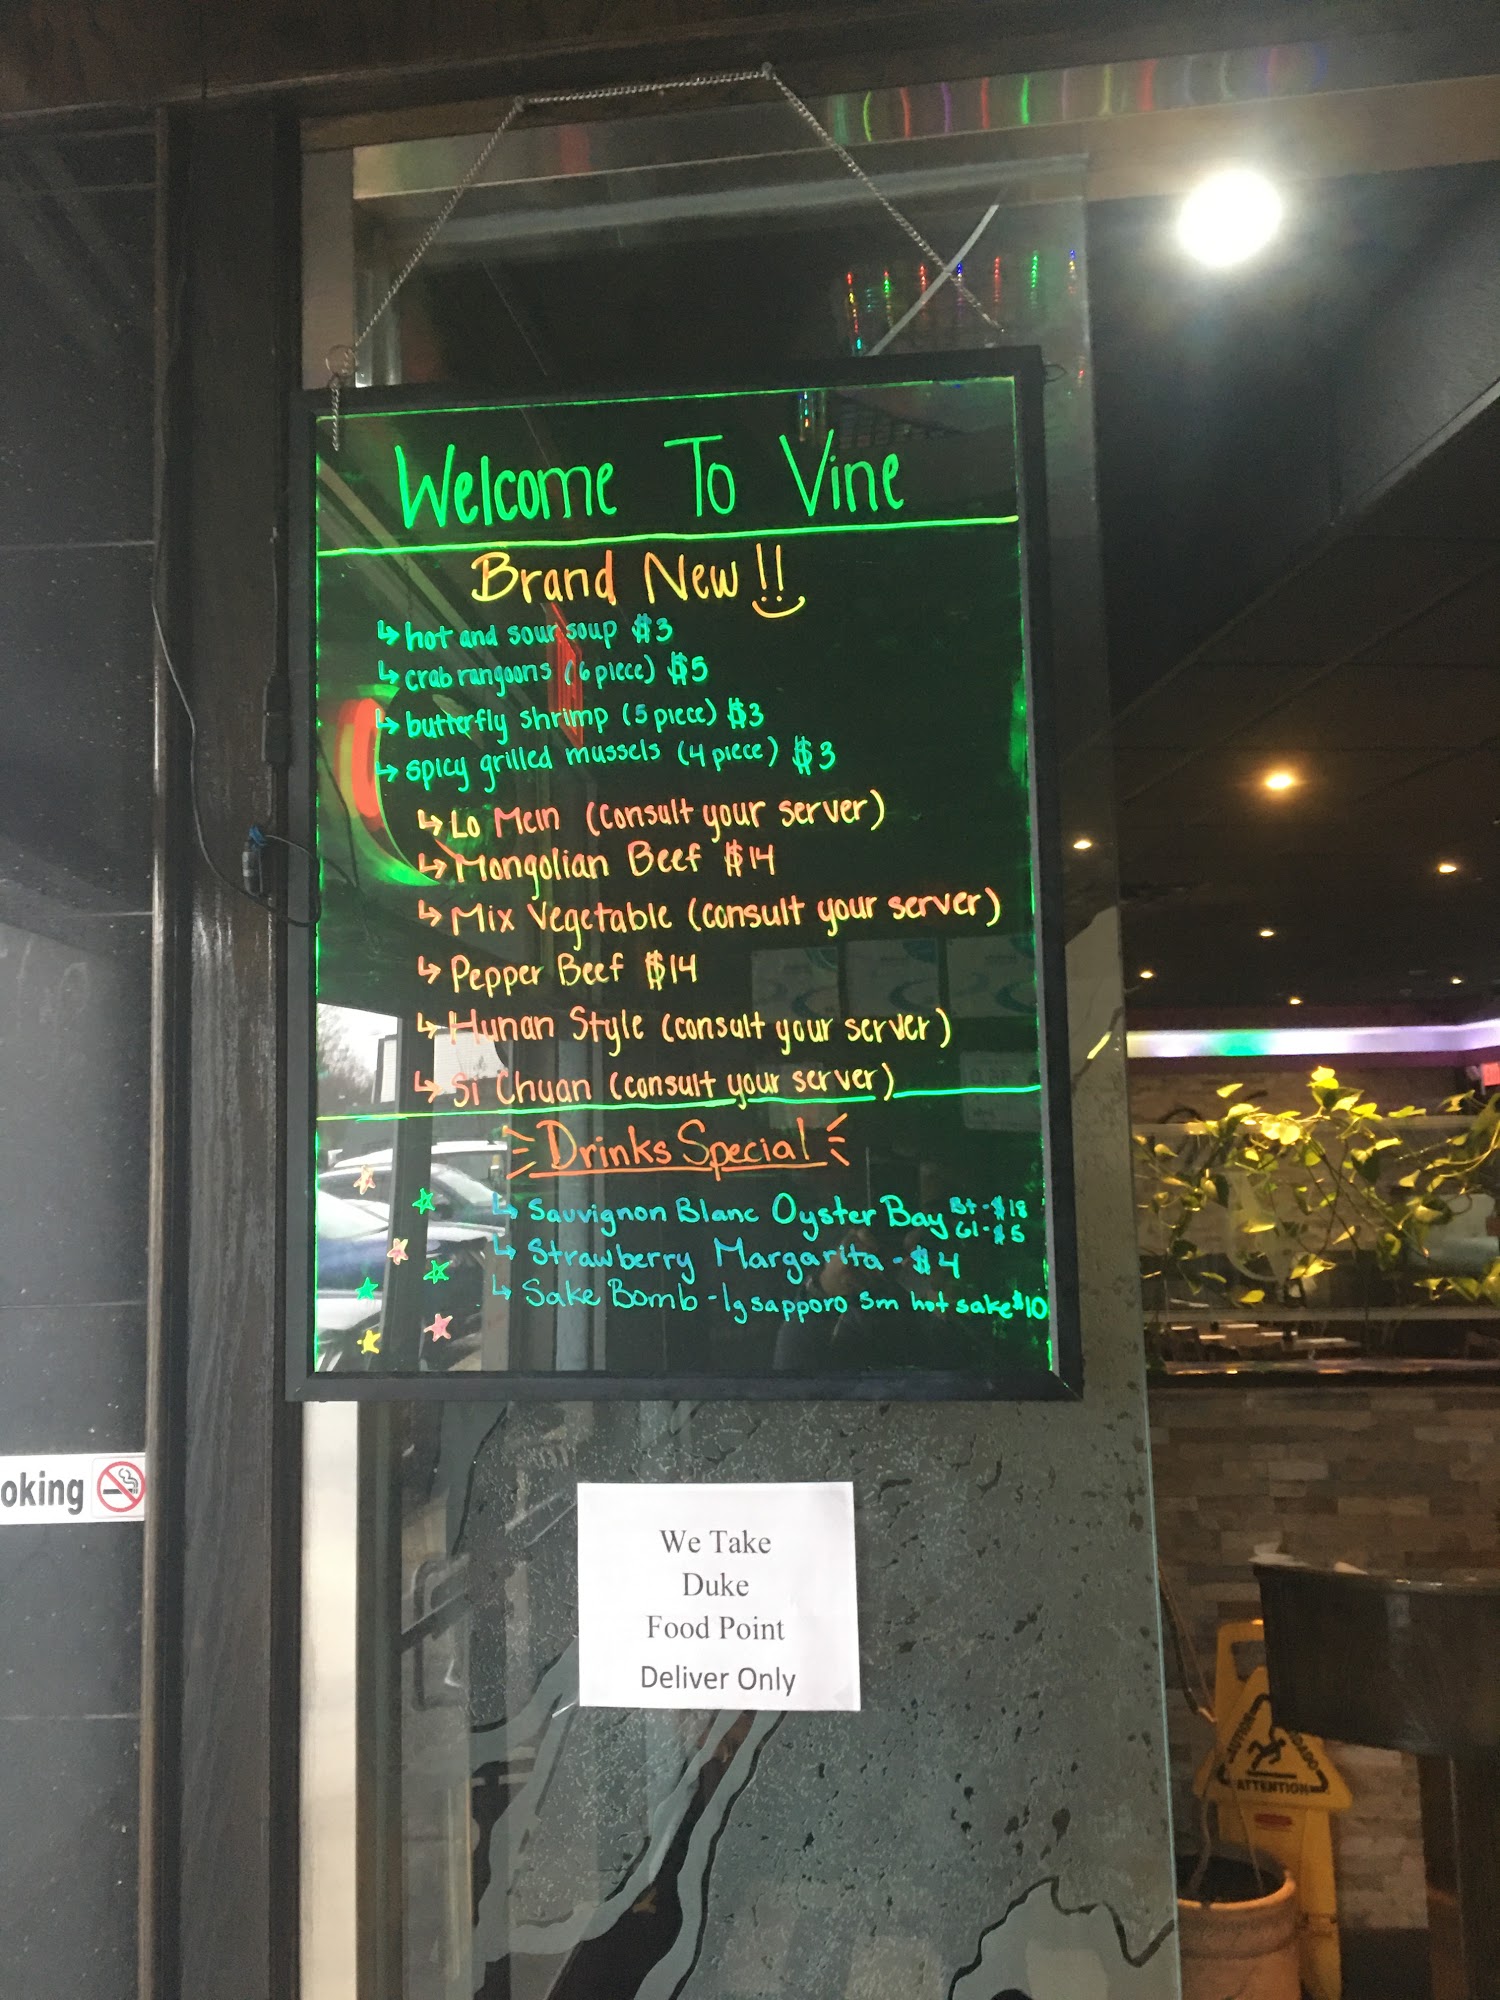 Welcome To Vine
Brand New!!
hot and sour soup $3
crab rangoons (6 piece) $5
butterfly shrimp (5 piece) $3
spicy grilled mussels (4 piece) $3
Lo Mein (consult your server)
Mongolian Beef $14
Mix Vegetable (consult your server)
Pepper Beef $14
Hunan Style (consult your server)
Si Chuan (consult your server)
Drinks Special
Sauvignon Blanc Oyster Bay Bt-$18
Gl-$5
Strawberry Margarita - $4
Sake Bomb - lg sapporo sm hot sake $10
oking
We Take
Duke
Food Point
Deliver Only
ATTENTION